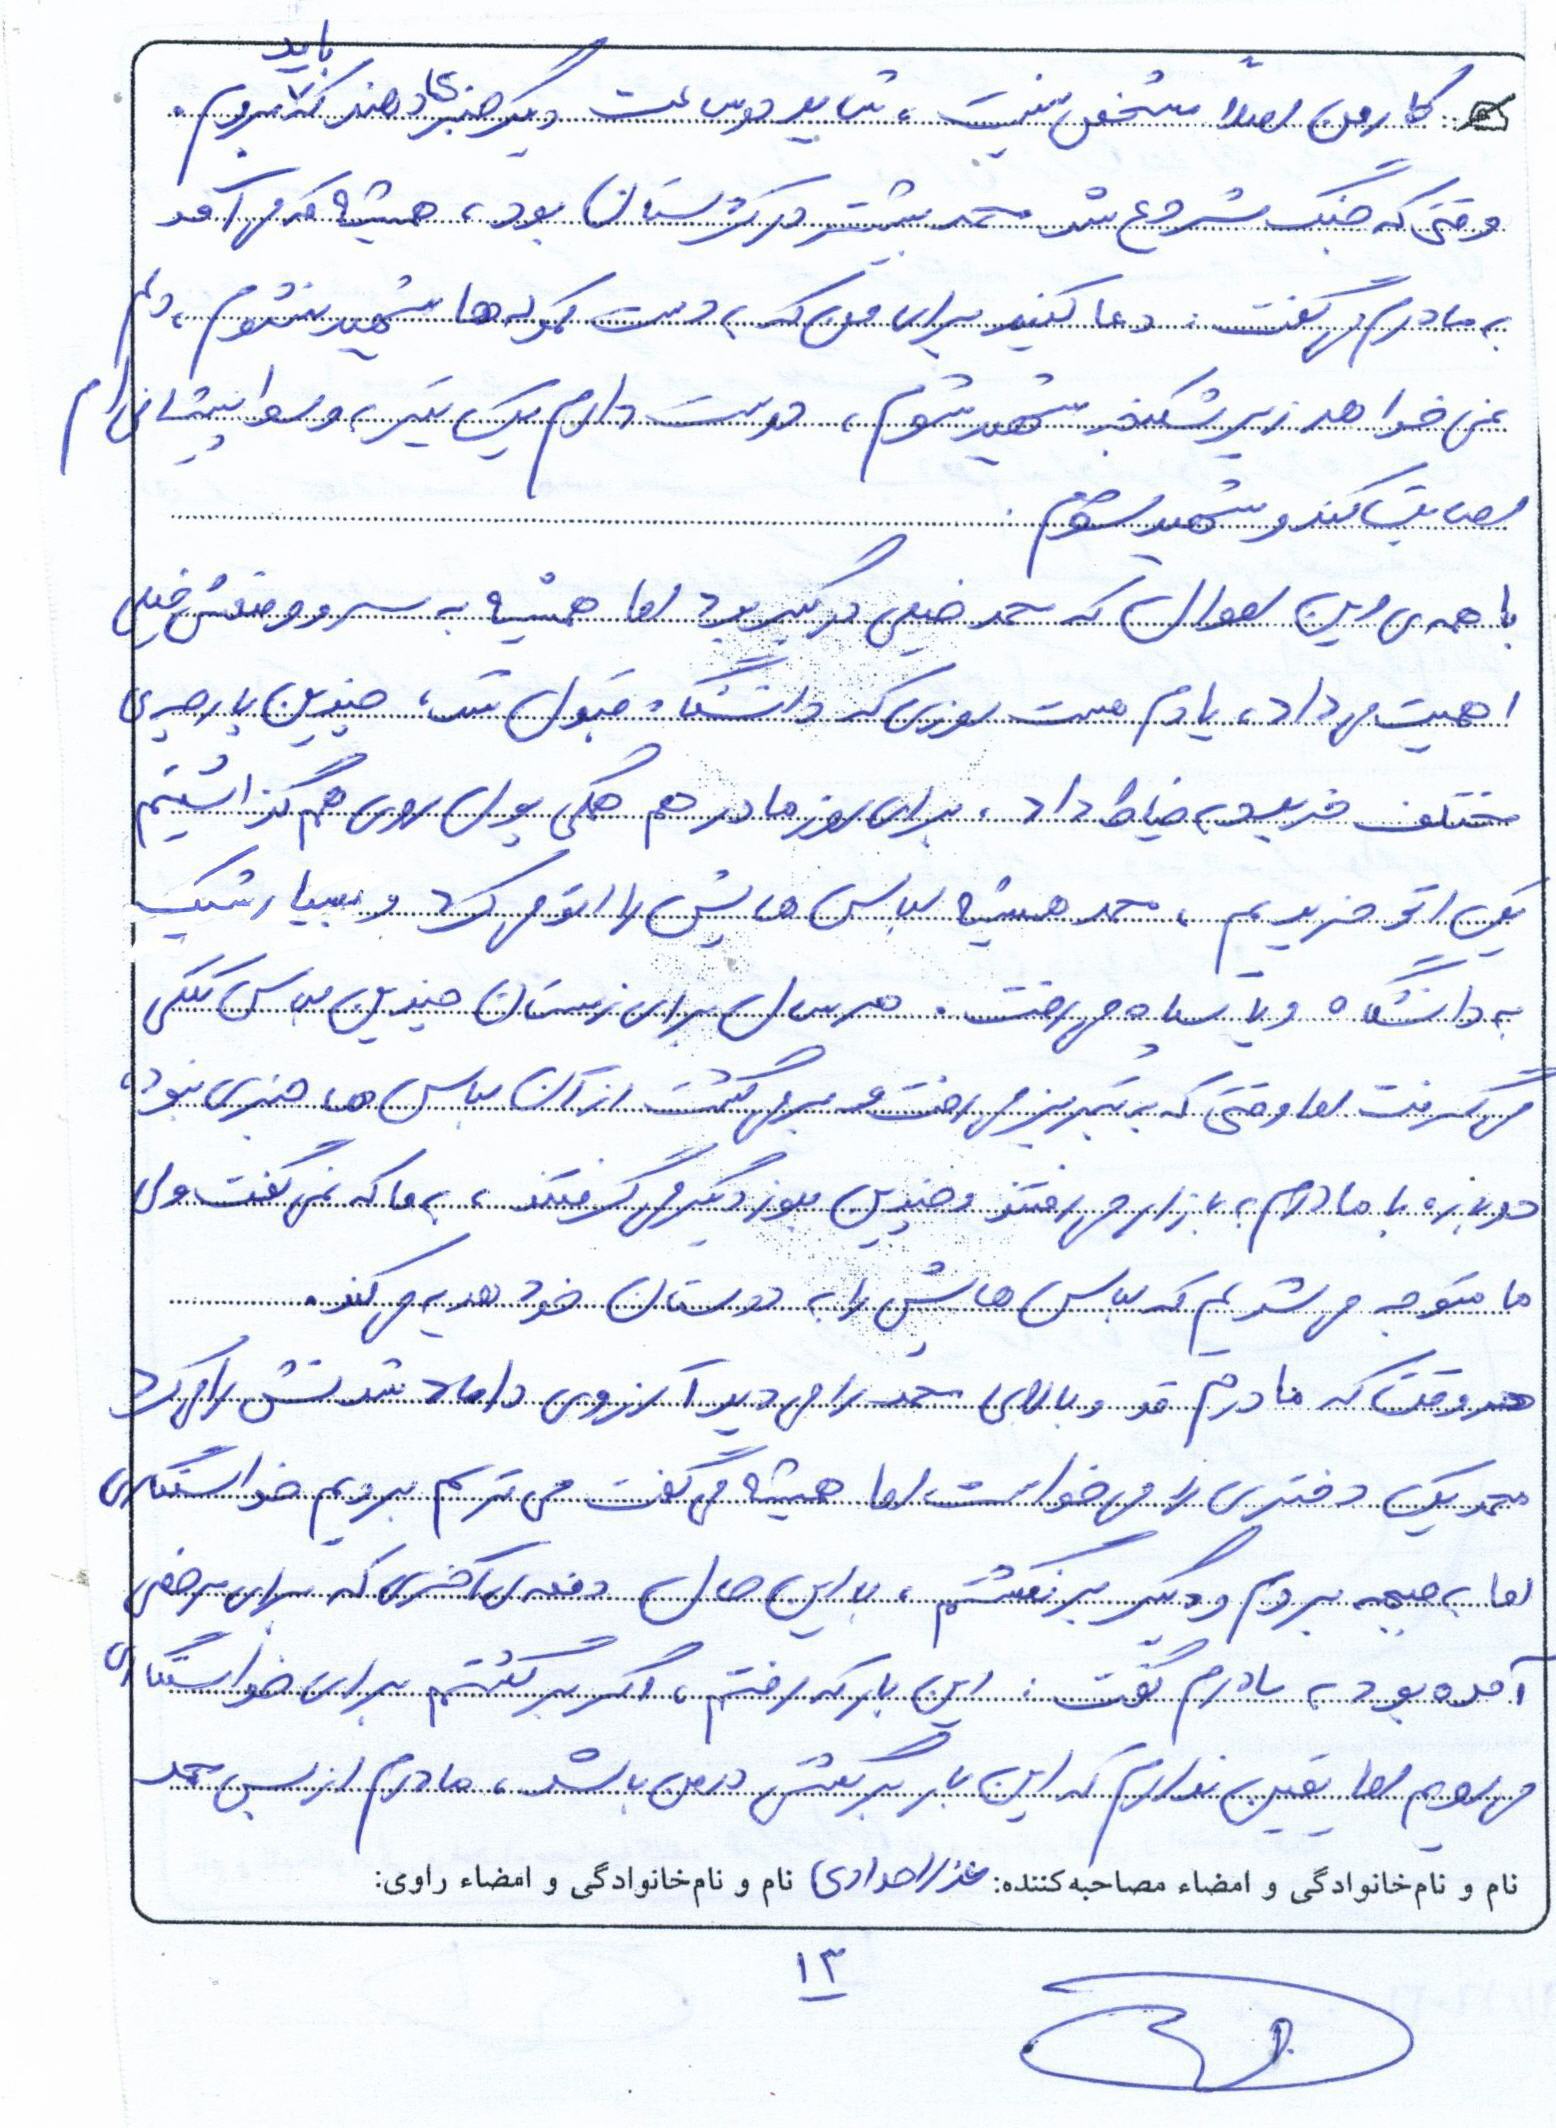 کار من اصلاً مشخص نیست، شاید دو ساعت دیگر خبر دهند که باید بروم.
وقتی که جنگ شروع شد محمد بیشتر در کردستان بود، همیشه که می آمد
به مادرم می گفت: دعا کنید برای من که به دست کومله ها شهید نشوم، دلم
نمی خواهد زیر شکنجه شهید شوم، دوست دارم یک تیر، وسط پیشانی ام
اصابت کند و شهید شوم.
با همه ی این احوال که محمد خیلی درگیر بود اما همیشه به سر و وضعش خیلی
اهمیت می داد، یادم هست روزی که دانشگاه قبول شد، چندین پارچه ی
مختلف خرید به خیاط داد، برای روز مادر هم همگی پول روی هم گذاشتیم
یک اتو خریدیم، محمد همیشه لباس هایش را اتو می کرد و بسیار شیک
به دانشگاه و یا سپاه می رفت. هر سال برای زمستان چندین لباس
می گرفت اما وقتی که به تبریز می رفت و برمی گشت از آن لباس ها خبری نبود،
دوباره با مادرم به بازار می رفتند و چندین بلوز دیگر می گرفتند، به ما که نمی گفت ولی
ما متوجه می شدیم که لباس هایش را به دوستان خود هدیه می کند.
هر وقت که مادرم قد و بالای محمد را می دید آرزوی داماد شدنش را می کرد
محمد یک دختری را می خواست اما همیشه می گفت می ترسم برویم خواستگاری
اما به جبهه بروم و دیگر برنگشتم، با این حال دفعه ی آخری که برای مرخصی
آمده بود به مادرم گفت: این بار که رفتم، اگر برگشتم برای خواستگاری
می رویم اما یقین ندارم که این بار برگشتی در من باشد، مادرم از بس محمد
نام و نام‌خانوادگی و امضاء مصاحبه‌کننده: نام و نام‌خانوادگی و امضاء راوی:
۱۳